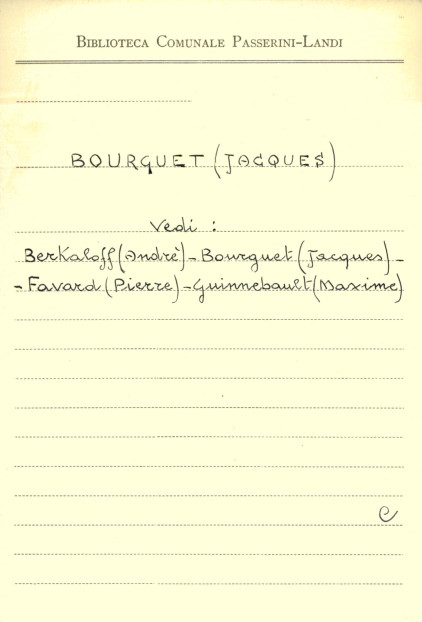 BIBLIOTECA COMUNALE PASSERINI-LANDI
BOURGUET (JACQUES)
Vedi :
Berkaloff (Andrè) - Bourguet (Jacques) -
- Favard (Pierre) - Guinnebault (Maxime)
e